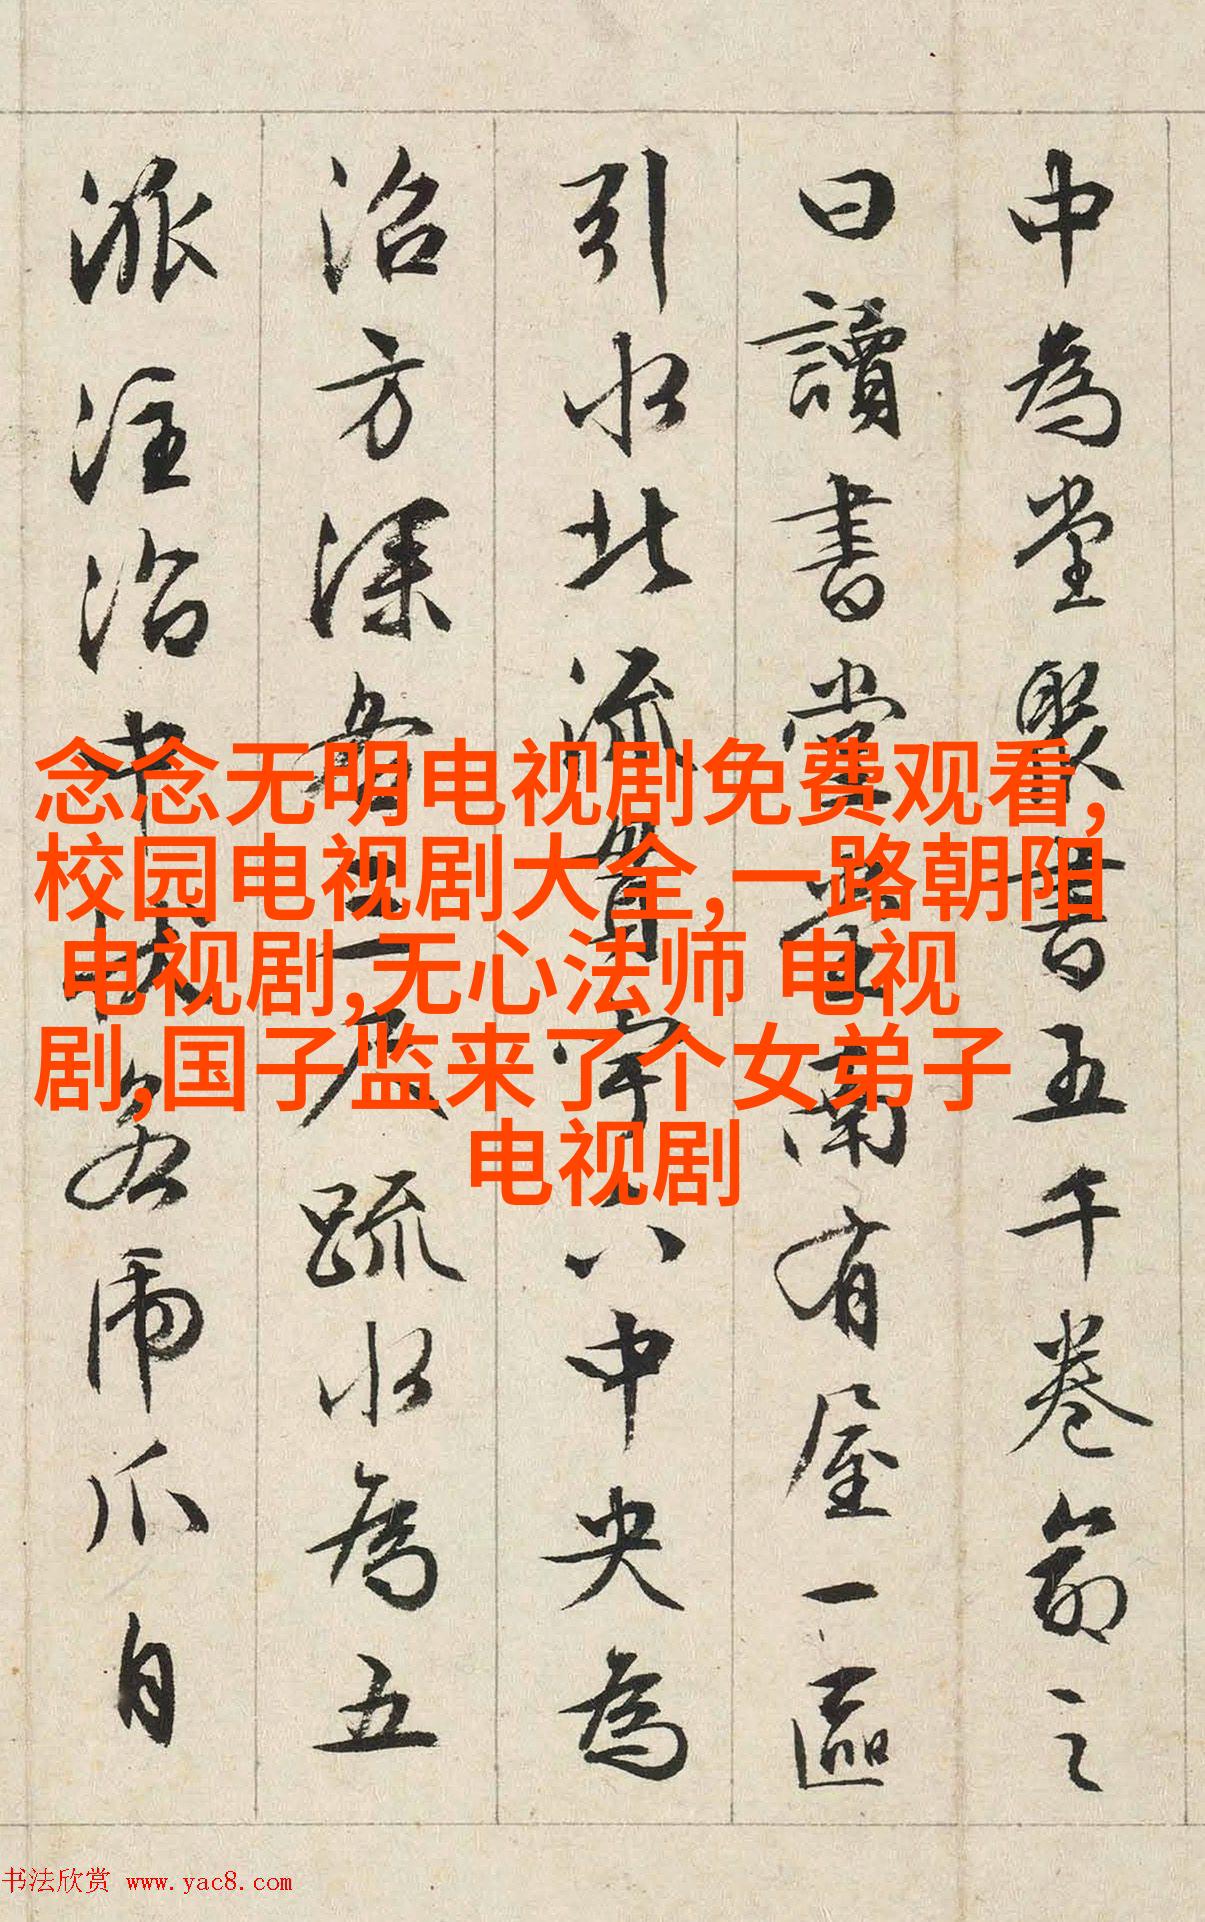 中為堂聚書五千卷命之
曰讀書堂堂南有屋一區
引水北流貫宇下中央為
沼方深各三尺疏水為五
派注沼中狀若虎爪自
念念无明电视剧免费观看,
校园电视剧大全,一路朝阳
电视剧,无心法师 电视
剧,国子监来了个女弟子
电视剧
书法欣赏 www.yac8.com